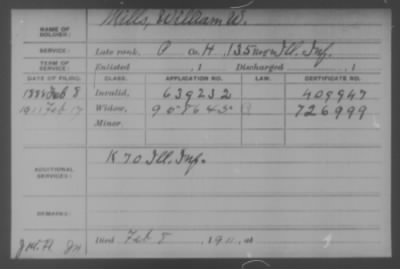 NAME OF SOLDIER: Mills, William W.
SERVICE: Late rank, P Co. H, 135 Reg't Ill. Inf.
TERM OF SERVICE: Enlisted , 1 Discharged , 1
DATE OF FILING. CLASS. APPLICATION NO. LAW. CERTIFICATE NO.
1888 Feb 8 Invalid, 639232 409947
1911 Feb 17 Widow, 958643 726999
Minor.
ADDITIONAL SERVICES: K 70 Ill. Inf.
REMARKS:
Died Feb 8 , 1911, at